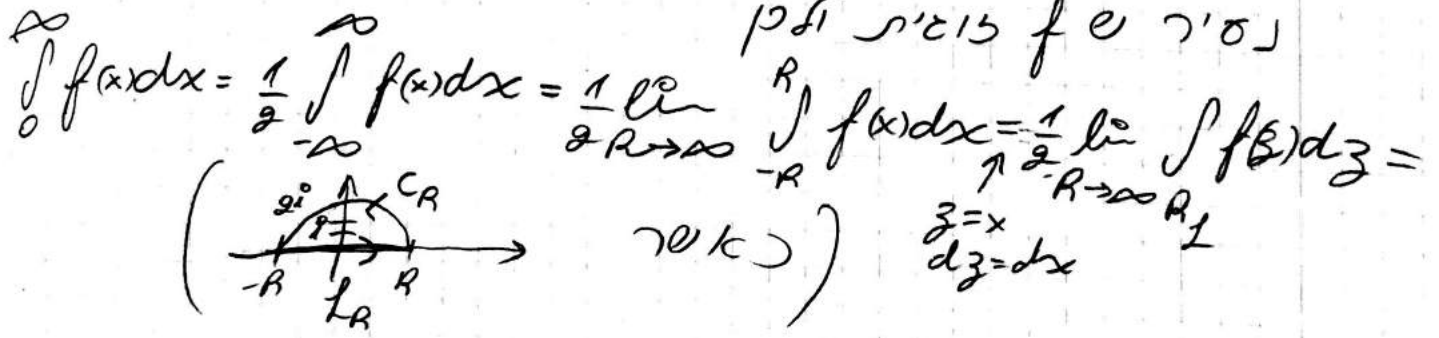 נעיר ש f זוגית ולכן
∫₀^∞ f(x)dx = 1/2 ∫_{-∞}^∞ f(x)dx = 1/2 lim_{R→∞} ∫_{-R}^R f(x)dx = 1/2 lim_{R→∞} ∫ f(z)dz =
↑
z=x
dz=dx
( כאשר
2i C_R
i
-R R
L_R )